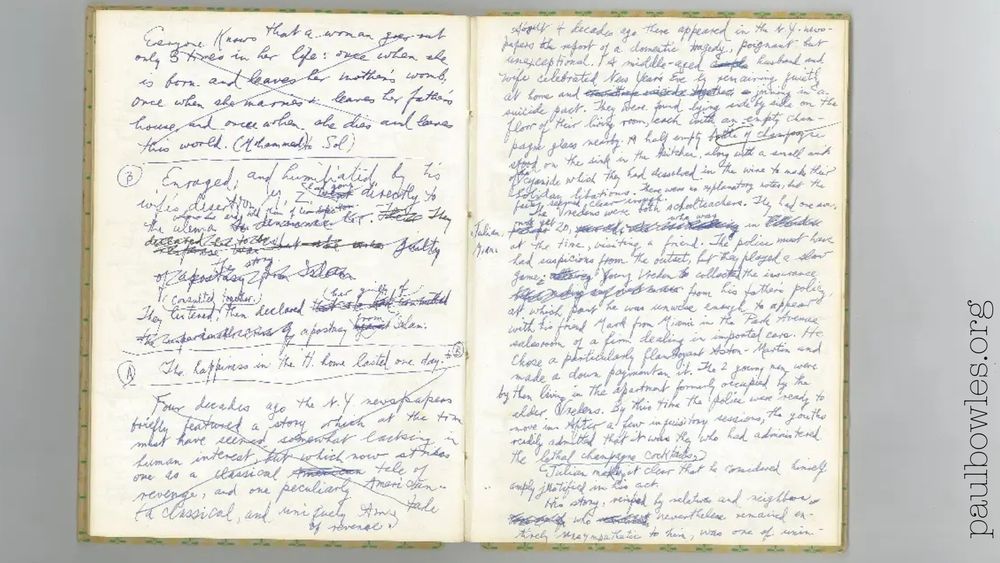 Everyone knows that a woman goes out
only 3 times in her life: once when she
is born and leaves her mother's womb,
once when she marries & leaves her father's
house, and once when she dies and leaves
this world. (Mohammed Sol)
B
Enraged, and humiliated by his
wife's desertion, directly to
the ulema to denounce her. They
guilty
of apostasy from Islam
(consulted together)
They listened, then declared her guilty of
apostasy from Islam.
A
The happiness in the H. home lasted one day. B
Four decades ago the N.Y. newspapers
briefly featured a story which at the time
must have seemed somewhat lacking in
human interest, but which now strikes
one as a classical American tale of
revenge, and one peculiarly American.
(a classical, and uniquely Amer. tale
of revenge.)
About 4 decades ago there appeared in the N.Y. news-
papers the report of a domestic tragedy, poignant but
unexceptional. A middle-aged husband and
wife celebrated New Years Eve by remaining quietly
at home and joining in a
suicide pact. They were found lying side by side on the
floor of their living room, each with an empty cham-
pagne glass nearby. A half empty bottle of champagne
stood on the sink in the kitchen, along with a small
of cyanide which they had dissolved in the wine to make their
libations. There were no explanatory notes, but the
seemed clear enough.
The Vredens were both schoolteachers. They had one son,
Julian, not yet 20, who was in
Miami
at the time, visiting a friend. The police must have
had suspicions from the outset, but they played a slow
game, young Vreden to collect the insurance
from his father's policy,
at which point he was unwise enough to appear
with his friend Mark from Miami in the Park Avenue
salesroom of a firm dealing in imported cars. He
chose a particularly flamboyant Aston-Martin and
made a down payment on it. The 2 young men were
by then living in the apartment formerly occupied by the
elder Vredens. By this time the police were ready to
move in. After a few inquisitory sessions, the youths
readily admitted that it was they who had administered
the lethal champagne cocktails.
Julian made it clear that he considered himself
amply justified in his act.
His story, reviled by relatives and neighbors
who nevertheless remained en-
tirely unsympathetic to him, was one of unin-
paulbowles.org